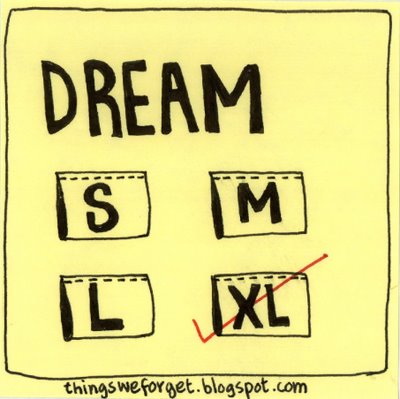 DREAM
S M
L XL
thingsweforget.blogspot.com